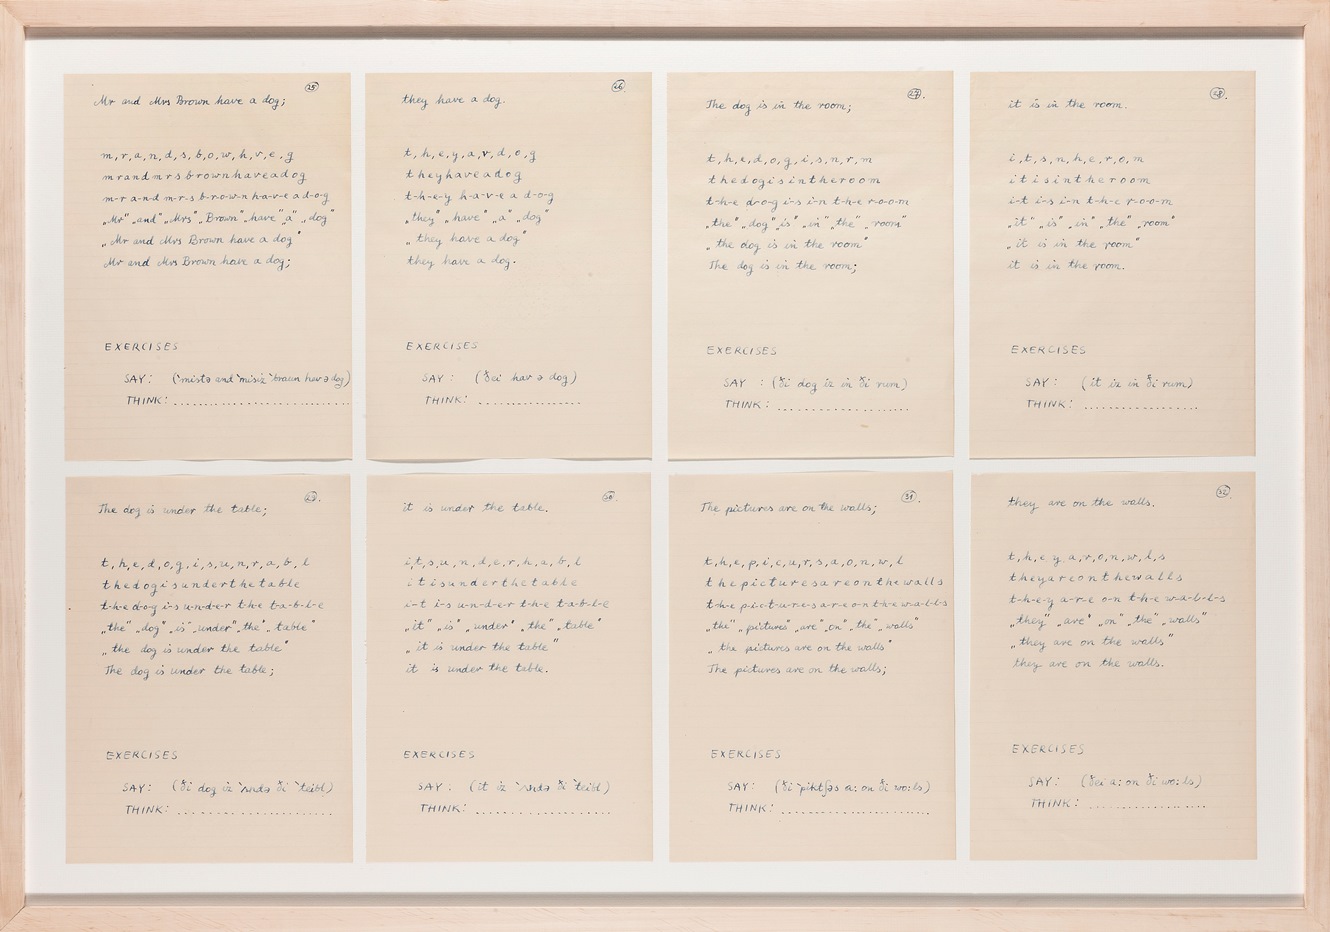 25
Mr and Mrs Brown have a dog;
m, r, a, n, d, s, b, o, w, h, v, e, g
mrandmrsbrownhaveadog
m-r a-n-d m-r-s b-r-o-w-n h-a-v-e a d-o-g
„Mr" „and" „Mrs" „Brown" „have" „a" „dog"
„Mr and Mrs Brown have a dog"
Mr and Mrs Brown have a dog;
EXERCISES
SAY: (`mistə and `misiz `braun hav ə dog)
THINK: ..............................
26
they have a dog.
t, h, e, y, a, v, d, o, g
theyhaveadog
t-h-e-y h-a-v-e a d-o-g
„they" „have" „a" „dog"
„they have a dog"
they have a dog.
EXERCISES
SAY: (ði hav ə dog)
THINK: ..................
27.
The dog is in the room;
t, h, e, d, o, g, i, s, n, r, m
thedogisintheroom
t-h-e d-o-g i-s i-n t-h-e r-o-o-m
„the" „dog" „is" „in" „the" „room"
„the dog is in the room"
The dog is in the room;
EXERCISES
SAY : (ði dog iz in ði rum)
THINK: ......................
28.
it is in the room.
i, t, s, n, h, e, r, o, m
itisintheroom
i-t i-s i-n t-h-e r-o-o-m
„it" „is" „in" „the" „room"
„it is in the room"
it is in the room.
EXERCISES
SAY: (it iz in ði rum)
THINK: ...................
29.
The dog is under the table;
t, h, e, d, o, g, i, s, u, n, r, a, b, l
thedogisunderthetable
t-h-e d-o-g i-s u-n-d-e-r t-h-e t-a-b-l-e
„the" „dog" „is" „under" „the" „table"
„the dog is under the table"
The dog is under the table;
EXERCISES
SAY: (ði dog iz `ʌndə ði `teibl)
THINK: ..........................
30.
it is under the table.
i, t, s, u, n, d, e, r, h, a, b, l
itisunderthetable
i-t i-s u-n-d-e-r t-h-e t-a-b-l-e
„it" „is" „under" „the" „table"
„it is under the table"
it is under the table.
EXERCISES
SAY: (it iz `ʌndə ði `teibl)
THINK: .......................
31.
The pictures are on the walls;
t, h, e, p, i, c, u, r, s, a, o, n, w, l
thepicturesareonthewalls
t-h-e p-i-c-t-u-r-e-s a-r-e o-n t-h-e w-a-l-l-s
„the" „pictures" „are" „on" „the" „walls"
„the pictures are on the walls"
The pictures are on the walls;
EXERCISES
SAY: (ði `piktʃəs a: on ði wo:ls)
THINK: ..........................
32.
they are on the walls.
t, h, e, y, a, r, o, n, w, l, s
theyareonthewalls
t-h-e-y a-r-e o-n t-h-e w-a-l-l-s
„they" „are" „on" „the" „walls"
„they are on the walls"
they are on the walls.
EXERCISES
SAY: (ðei a: on ði wo:ls)
THINK: ....................